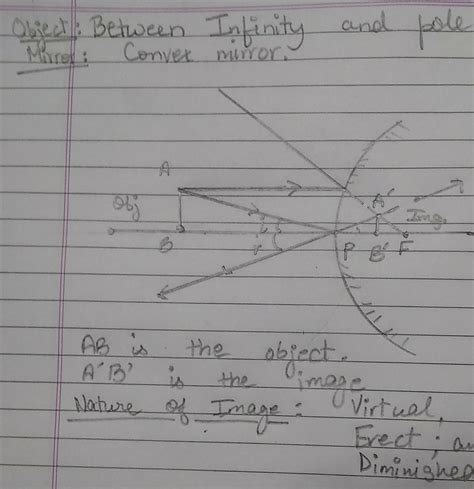 Object: Between Infinity and pole
Mirror: Convex mirror.
A
Obj
A'
Img.
i
r
B
P
B'
F
AB is the object.
A'B' is the image
Nature of Image: Virtual,
Erect; an
Diminished